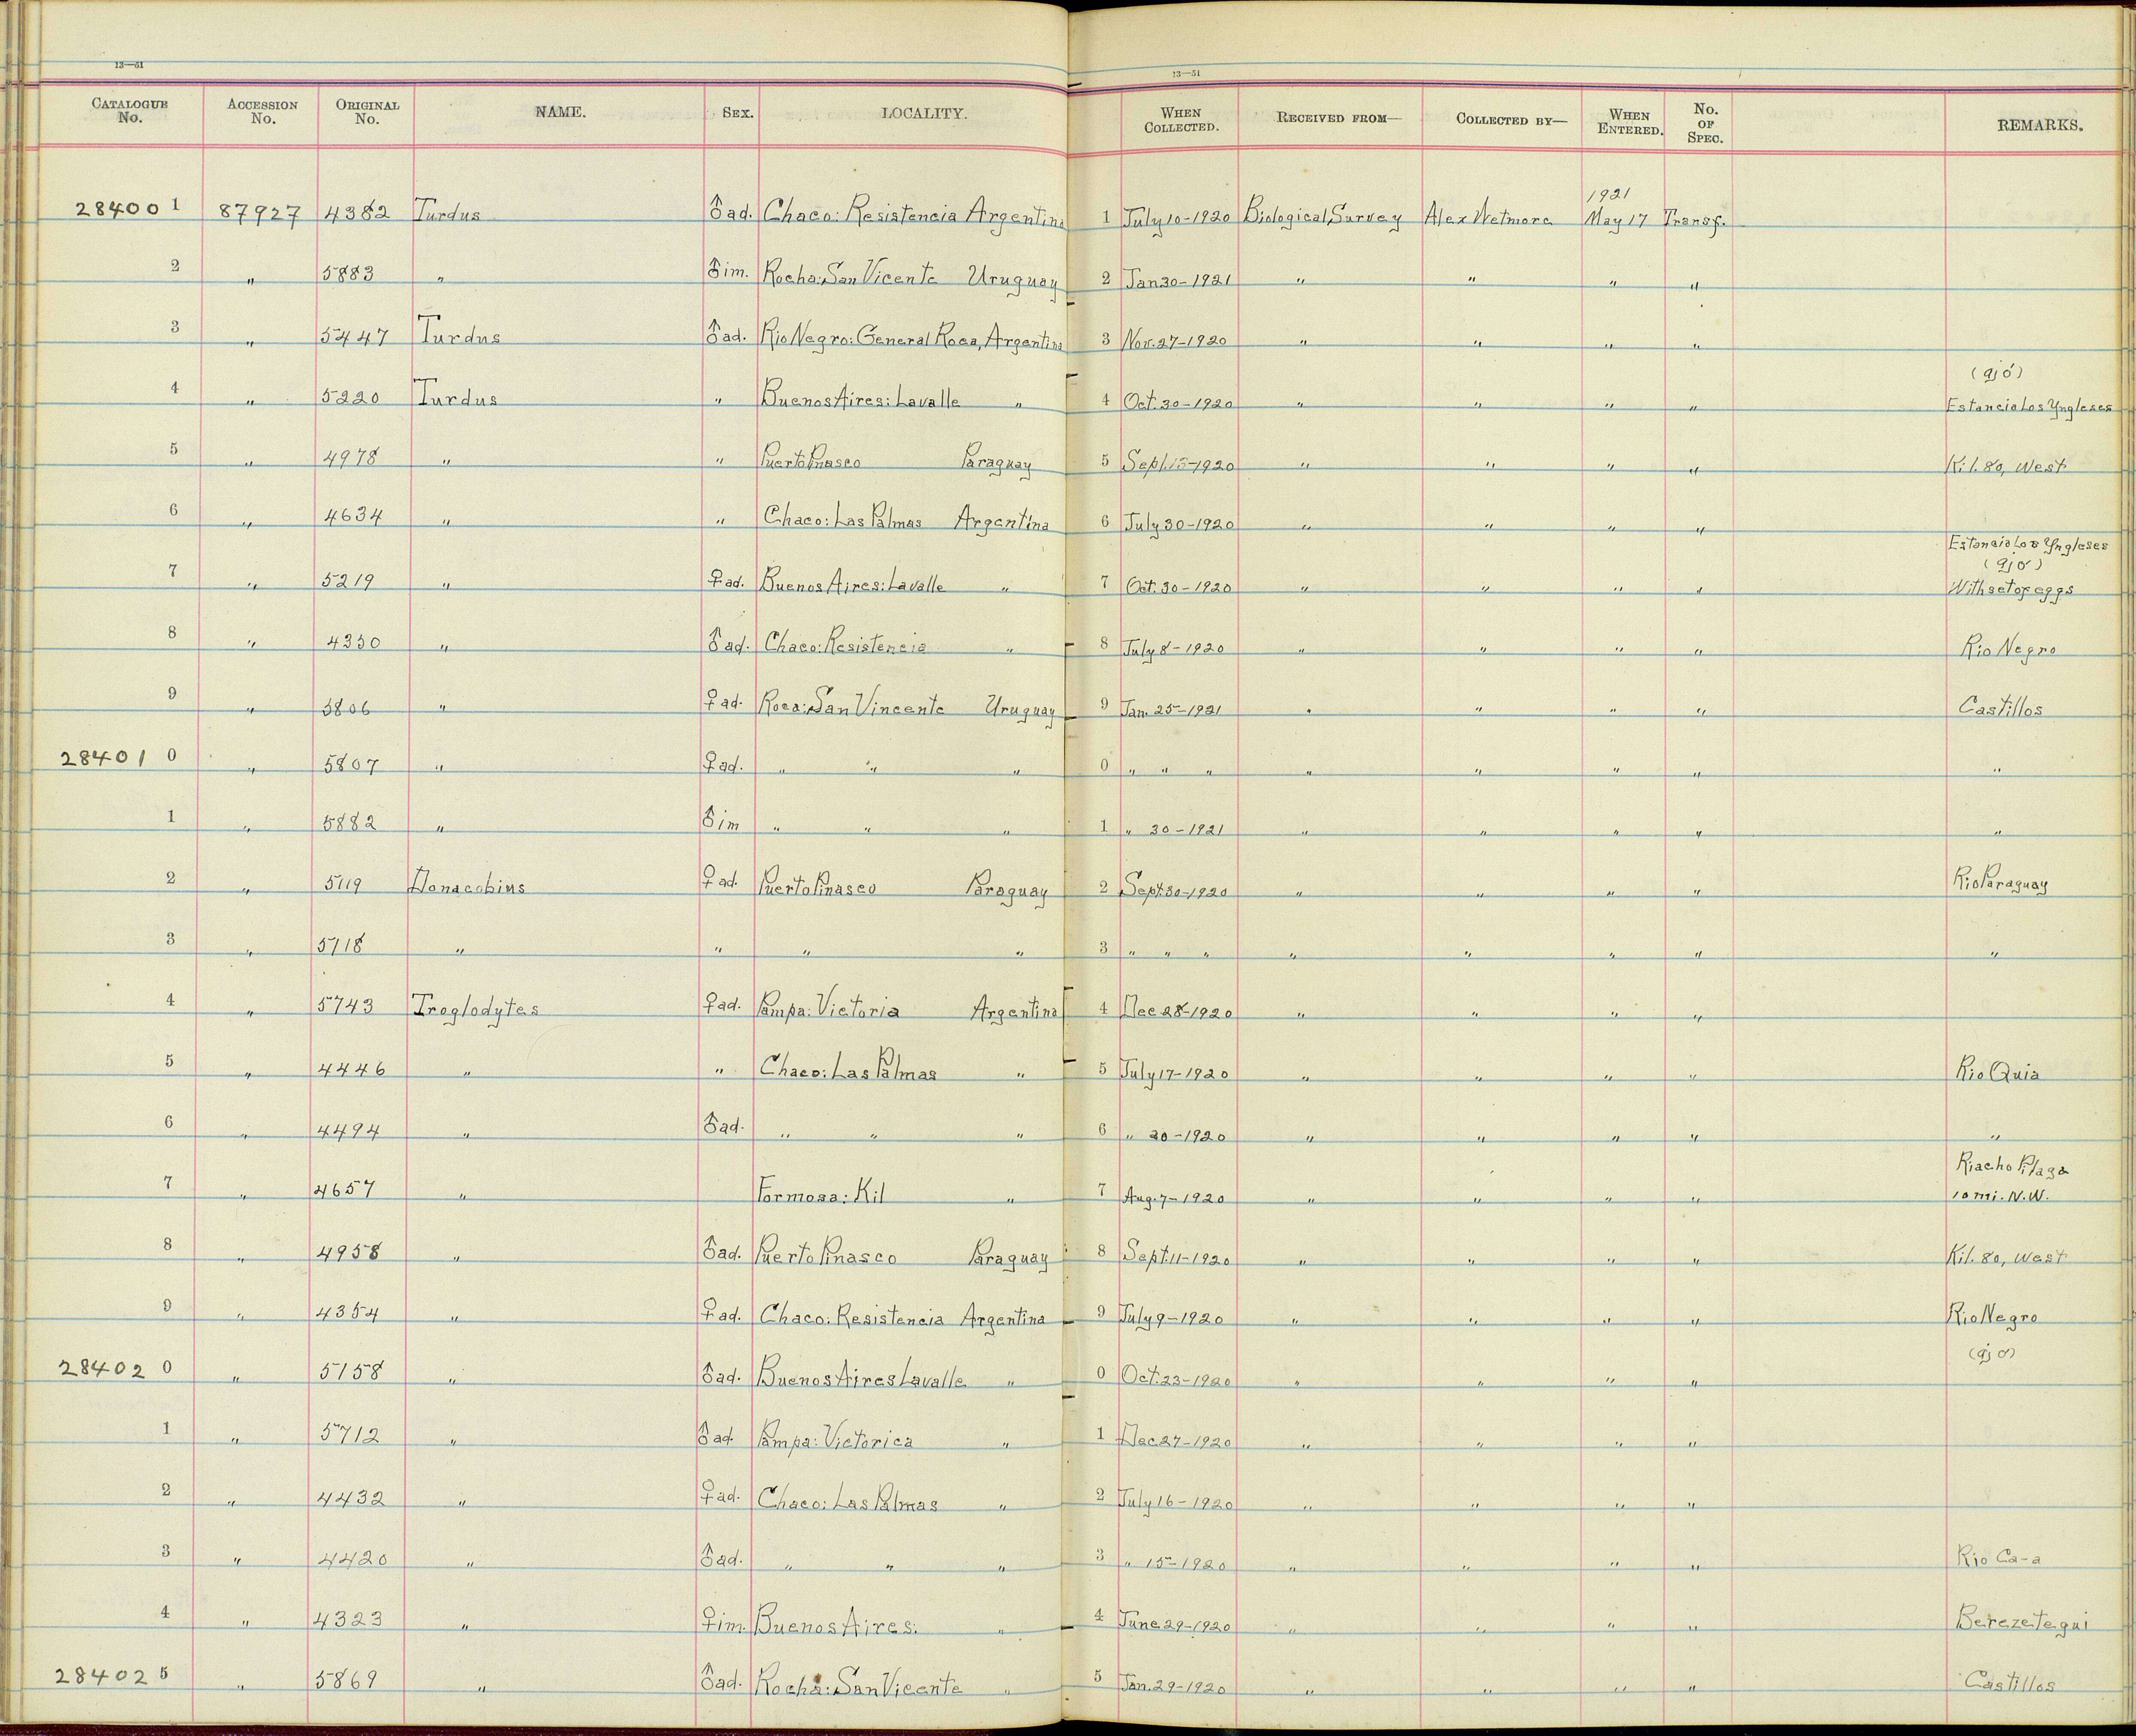 13—51
13—51
CATALOGUE No. ACCESSION No. ORIGINAL No. NAME. SEX. LOCALITY. WHEN COLLECTED. RECEIVED FROM— COLLECTED BY— WHEN ENTERED. No. OF SPEC. REMARKS.
1921
284001 87927 4382 Turdus ♂ad. Chaco: Resistencia Argentina 1 July 10-1920 Biological Survey Alex Wetmore May 17 Transf.
2 " 5883 " ♂im. Rocha: San Vicente Uruguay 2 Jan 30-1921 " " " "
3 " 5447 Turdus ♂ad. Rio Negro: General Roca, Argentina 3 Nov. 27-1920 " " " "
(Ajó)
4 " 5220 Turdus " Buenos Aires: Lavalle " 4 Oct. 30-1920 " " " " Estancia Los Yngleses
5 " 4978 " " Puerto Pinasco Paraguay 5 Sept. 13-1920 " " " " Kil. 80, West
6 " 4634 " " Chaco: Las Palmas Argentina 6 July 30-1920 " " " "
Estancia Los Yngleses
(Ajó)
7 " 5219 " ♀ad. Buenos Aires: Lavalle " 7 Oct. 30-1920 " " " " With set of eggs
8 " 4350 " ♂ad. Chaco: Resistencia " 8 July 8-1920 " " " " Rio Negro
9 " 5806 " ♀ad. Roca: San Vincente Uruguay 9 Jan. 25-1921 " " " " Castillos
284010 " 5807 " ♀ad. " " " 0 " " " " " " " "
1 " 5882 " ♂im " " " 1 " 30-1921 " " " " "
2 " 5119 Donacobius ♀ad. Puerto Pinasco Paraguay 2 Sept. 30-1920 " " " " Rio Paraguay
3 " 5118 " " " " 3 " " " " " " " "
4 " 5743 Troglodytes ♀ad. Pampa: Victoria Argentina 4 Dec 28-1920 " " " "
5 " 4446 " " Chaco: Las Palmas " 5 July 17-1920 " " " " Rio Quia
6 " 4494 " ♂ad. " " " 6 " 20-1920 " " " " "
Riacho Pilaga
7 " 4657 " Formosa: Kil " 7 Aug. 7-1920 " " " " 10 mi. N.W.
8 " 4958 " ♂ad. Puerto Pinasco Paraguay 8 Sept. 11-1920 " " " " Kil. 80, West
9 " 4354 " ♀ad. Chaco: Resistencia Argentina 9 July 9-1920 " " " " Rio Negro
(Ajó)
284020 " 5158 " ♂ad. Buenos Aires Lavalle " 0 Oct. 23-1920 " " " "
1 " 5712 " ♂ad. Pampa: Victorica " 1 Dec 27-1920 " " " "
2 " 4432 " ♀ad. Chaco: Las Palmas " 2 July 16-1920 " " " "
3 " 4420 " ♂ad. " " " 3 " 15-1920 " " " " Rio Ca-a
4 " 4323 " ♀im. Buenos Aires: " 4 June 29-1920 " " " " Berezetegui
284025 " 5869 " ♂ad. Rocha: San Vicente " 5 Jan. 29-1920 " " " " Castillos